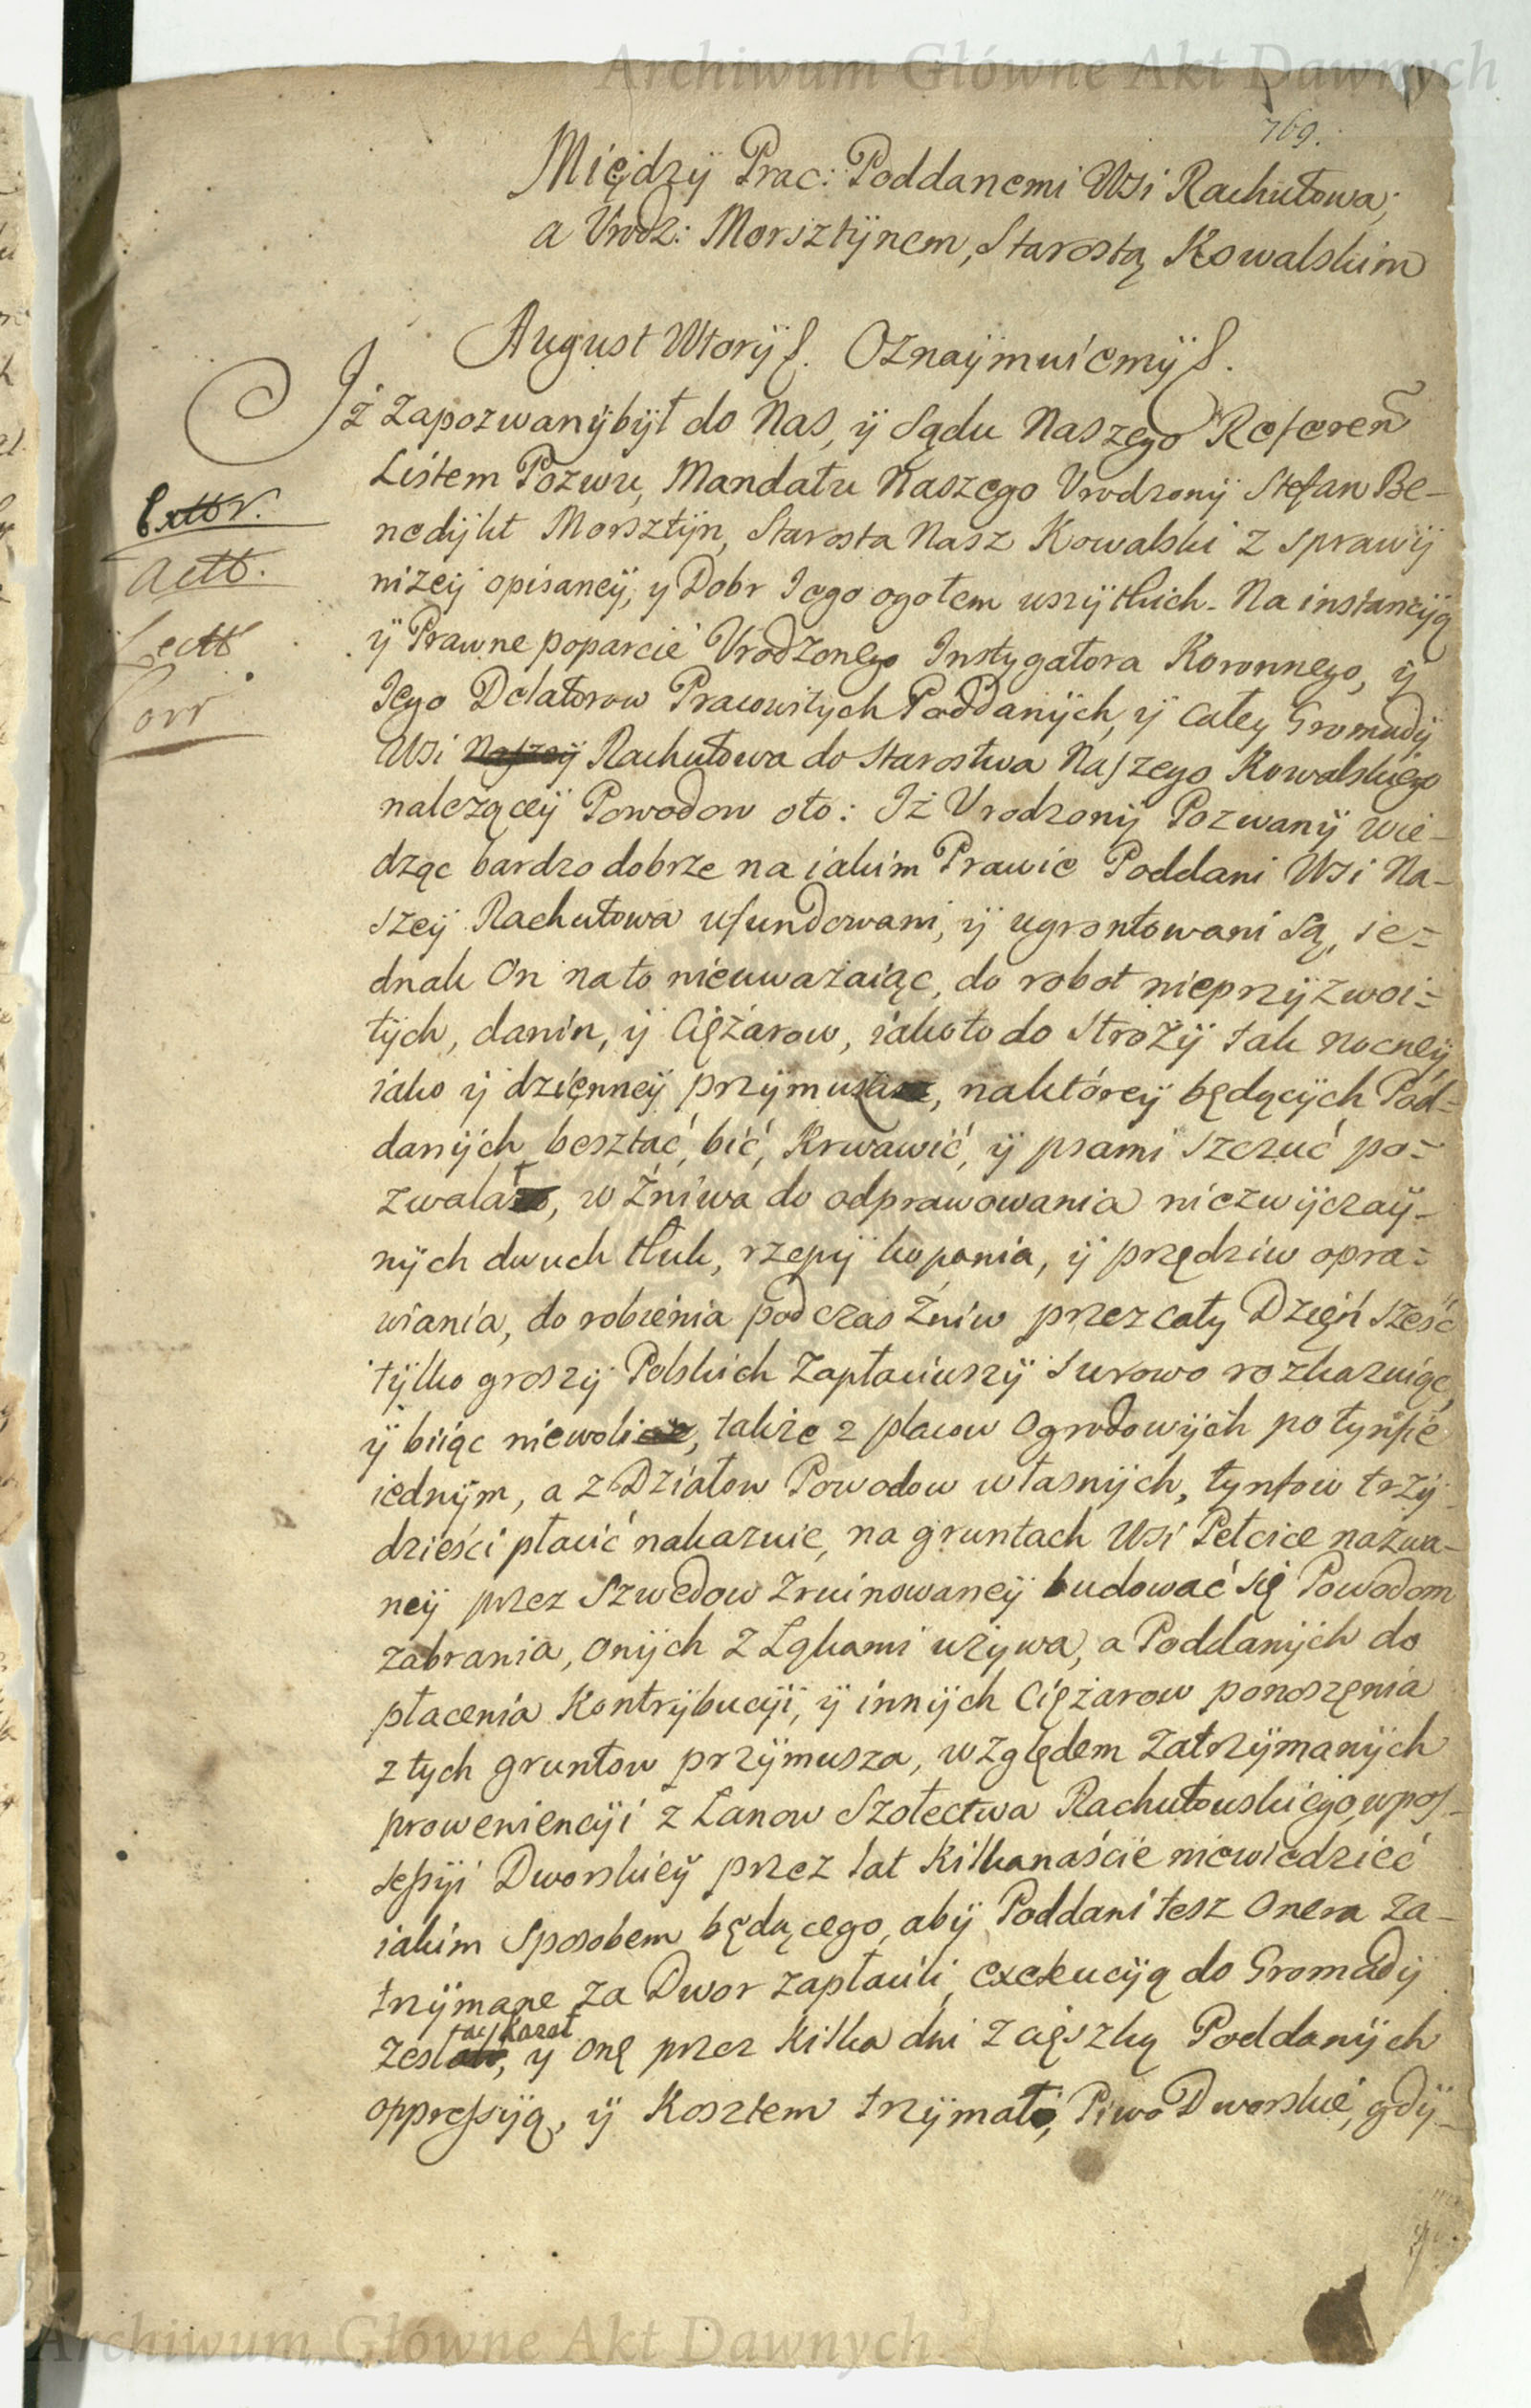 Archiwum Główne Akt Dawnych
769.
Między Prac: Poddanemi Wsi Rachutowa,
a Vrodz: Morsztynem, Starostą Kowalskim
August Wtory &. Oznaymuiemy &.
Iż zapozwany był do Nas, y Sądu Naszego Referen
Listem Pozwu, Mandatu Naszego Vrodzony Stefan Be-
nedykt Morsztyn, Starosta Nasz Kowalski z sprawy
niżey opisaney, y Dobr Iego ogołem wszytkich. Na instancyą
y Prawne poparcie Vrodzonego Instygatora Koronnego, y
Iego Delatorow Pracowitych Poddanych, y całey Gromady
Wsi Naszey Rachutowa do Starostwa Naszego Kowalskiego
należącey Powodow oto: Iż Vrodzony Pozwany wie-
dząc bardzo dobrze na iakim Prawie Poddani Wsi Na-
szey Rachutowa ufundowani, y ugrontowani są, ie=
dnak On na to nieuważaiąc, do robot nieprzyzwoi=
tych, danin, y Ciężarow, iako to do Stroży tak nocney,
iako y dzięnney przymusza, na którey będących Pod=
danych besztać, bić, Krwawić, y psami szczuć po=
zwalał, w Żniwa do odprawowania niezwyczay-
nych dwuch tłuk, rzepy kopania, y przędziw opra=
wiania, do robienia podczas Żniw przez cały Dzień sześć
tylko groszy Polskich zapłaciwszy surowo rozkazuiąc,
y biiąc niewoli, także z placow Ogrodowych po tynfie
iednym, a z Działow Powodow własnych, tynfow trzy-
dzieści płacić nakazuie, na gruntach Wsi Petcice nazwa-
ney przez Szwedow zruinowaney budować się Powodom
zabrania, onych z Łąkami używa, a Poddanych do
płacenia Kontrybucyi, y innych Ciężarow ponoszęnia
z tych gruntow przymusza, względem zatrzymanych
proweniencyi z Łanow Szołectwa Rachutowskiego, w pos-
sessyi Dworskiey przez lat kilkanaście niewiedzieć
iakim sposobem będącego, aby Poddani tesz Onera za-
trzymane za Dwor zapłacili, exekucyą do Gromady
zesłać kazał, y onę przez kilka dni z cięszką Poddanych
oppressyą, y Kosztem trzymał, Piwo Dworskie, gdy-
Extr.
Actt.
Lectt
Corr
Archiwum Główne Akt Dawnych